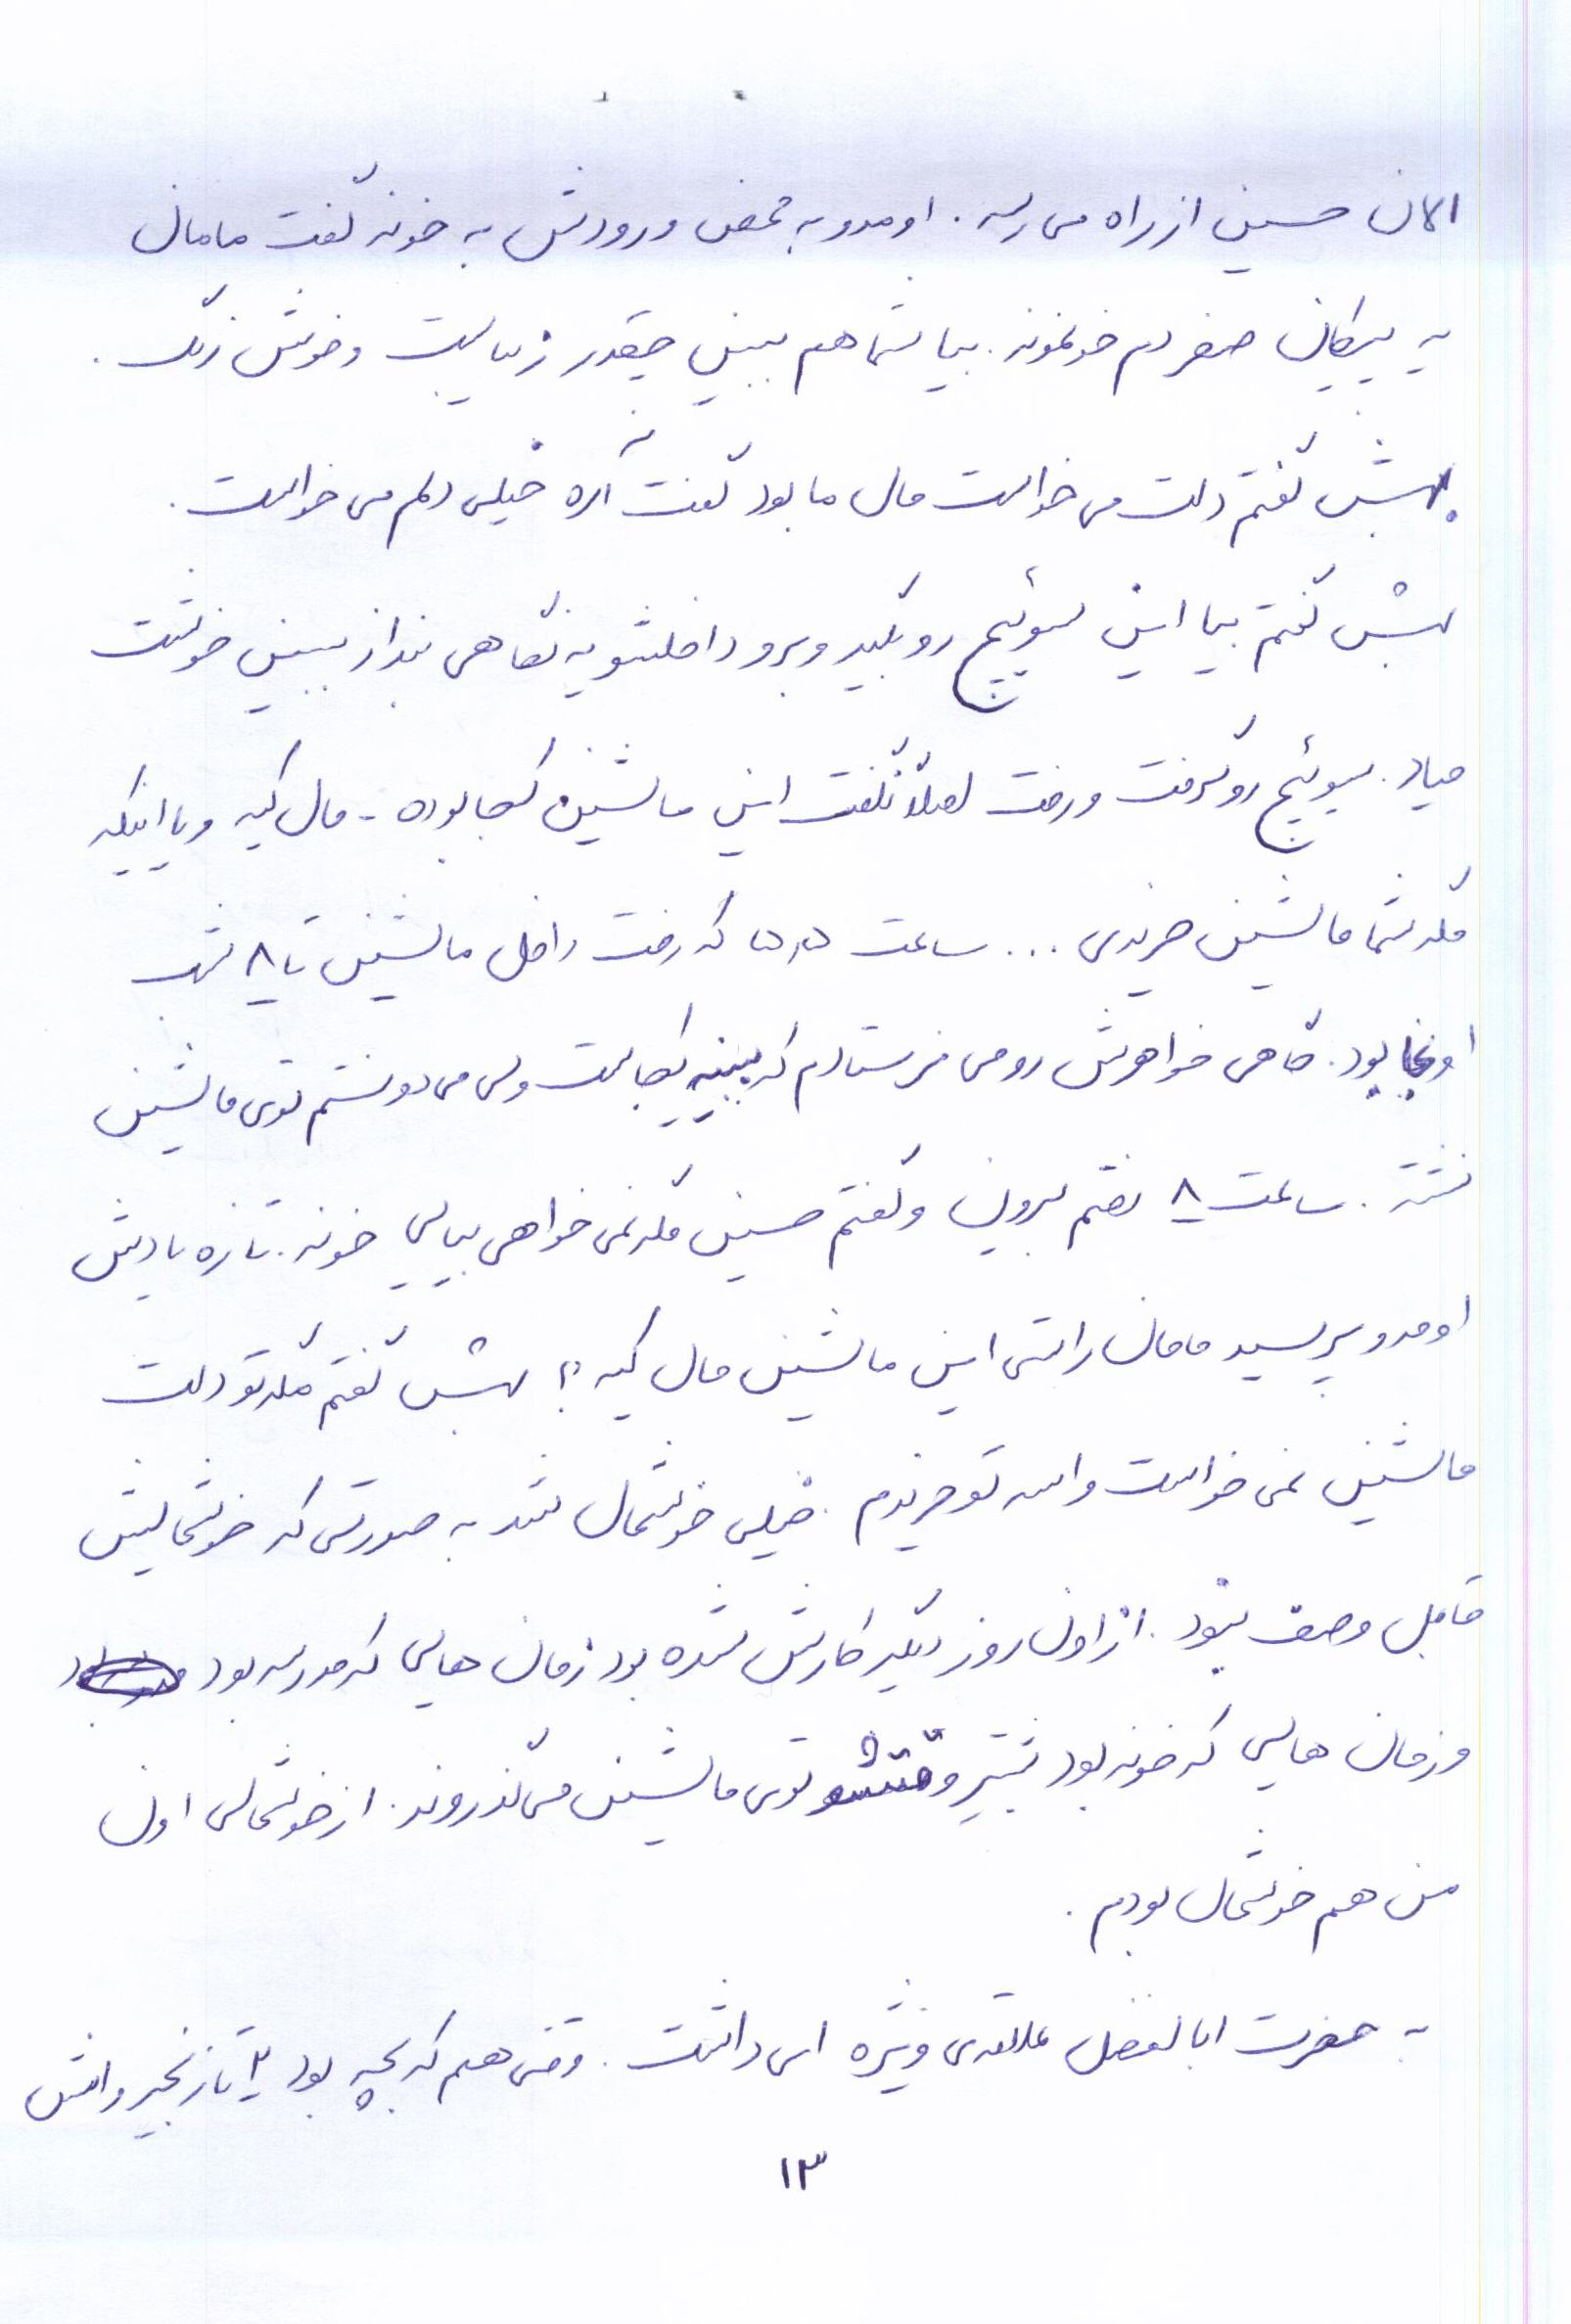 الان حسین از راه می رسه. اومد و به محض ورودش به خونه گفت مامان
یه پیکان صفر دم خونمونه. بیا شما هم ببین چقدر زیباست و خوش رنگ.
بهش گفتم دلت می خواست مال ما بود گفت آره خیلی دلم می خواست.
بهش گفتم بیا این سوئیچ رو بگیر و برو داخلشو یه نگاهی بنداز ببین خوشت
میاد. سوئیچ رو گرفت و رفت اصلاً نگفت این ماشین کجا بوده - مال کیه و یا اینکه
مگه شما ماشین خریدی ... ساعت ۵،۵ که رفت داخل ماشین تا ۸ شب
اونجا بود. گاهی خواهرش رو می فرستادم که ببینه کجاست ولی می دونستم توی ماشین
نشسته. ساعت ۸ رفتم بیرون و گفتم حسین مگه نمی خواهی بیایی خونه. تازه یادش
اومد و پرسید مامان راستی این ماشین مال کیه؟ بهش گفتم مگه تو دلت
ماشین نمی خواست واسه تو خریدم. خیلی خوشحال شد به صورتی که خوشحالیش
قابل وصف نبود. از اون روز دیگه کارش شده بود زمان هایی که مدرسه بود
و زمان هایی که خونه بود بیشتر وقتشو توی ماشین می گذروند. از خوشحالی اون
من هم خوشحال بودم.
به حضرت ابالفضل علاقه ی ویژه ای داشت. وقتی هم که بچه بود ۲ تا زنجیر واسش
۱۳